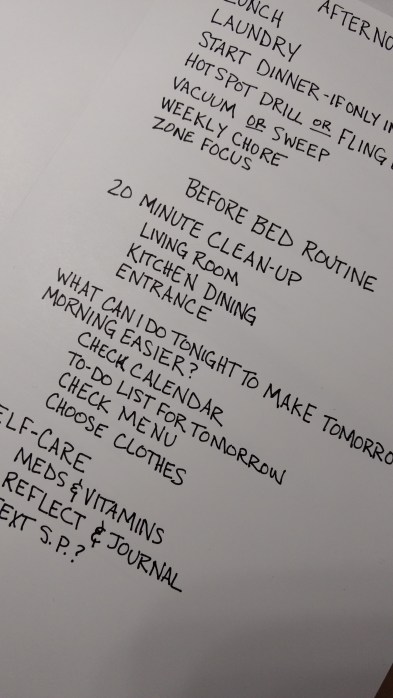 AFTERNO
LUNCH
LAUNDRY
START DINNER - IF ONLY I
HOTSPOT DRILL OR FLING
VACUUM OR SWEEP
WEEKLY CHORE
ZONE FOCUS
BEFORE BED ROUTINE
20 MINUTE CLEAN-UP
LIVING ROOM
KITCHEN DINING
ENTRANCE
WHAT CAN I DO TONIGHT TO MAKE TOMORRO
MORNING EASIER?
CHECK CALENDAR
TO-DO LIST FOR TOMORROW
CHECK MENU
CHOOSE CLOTHES
ELF-CARE
MEDS & VITAMINS
REFLECT & JOURNAL
EXT S.P.?